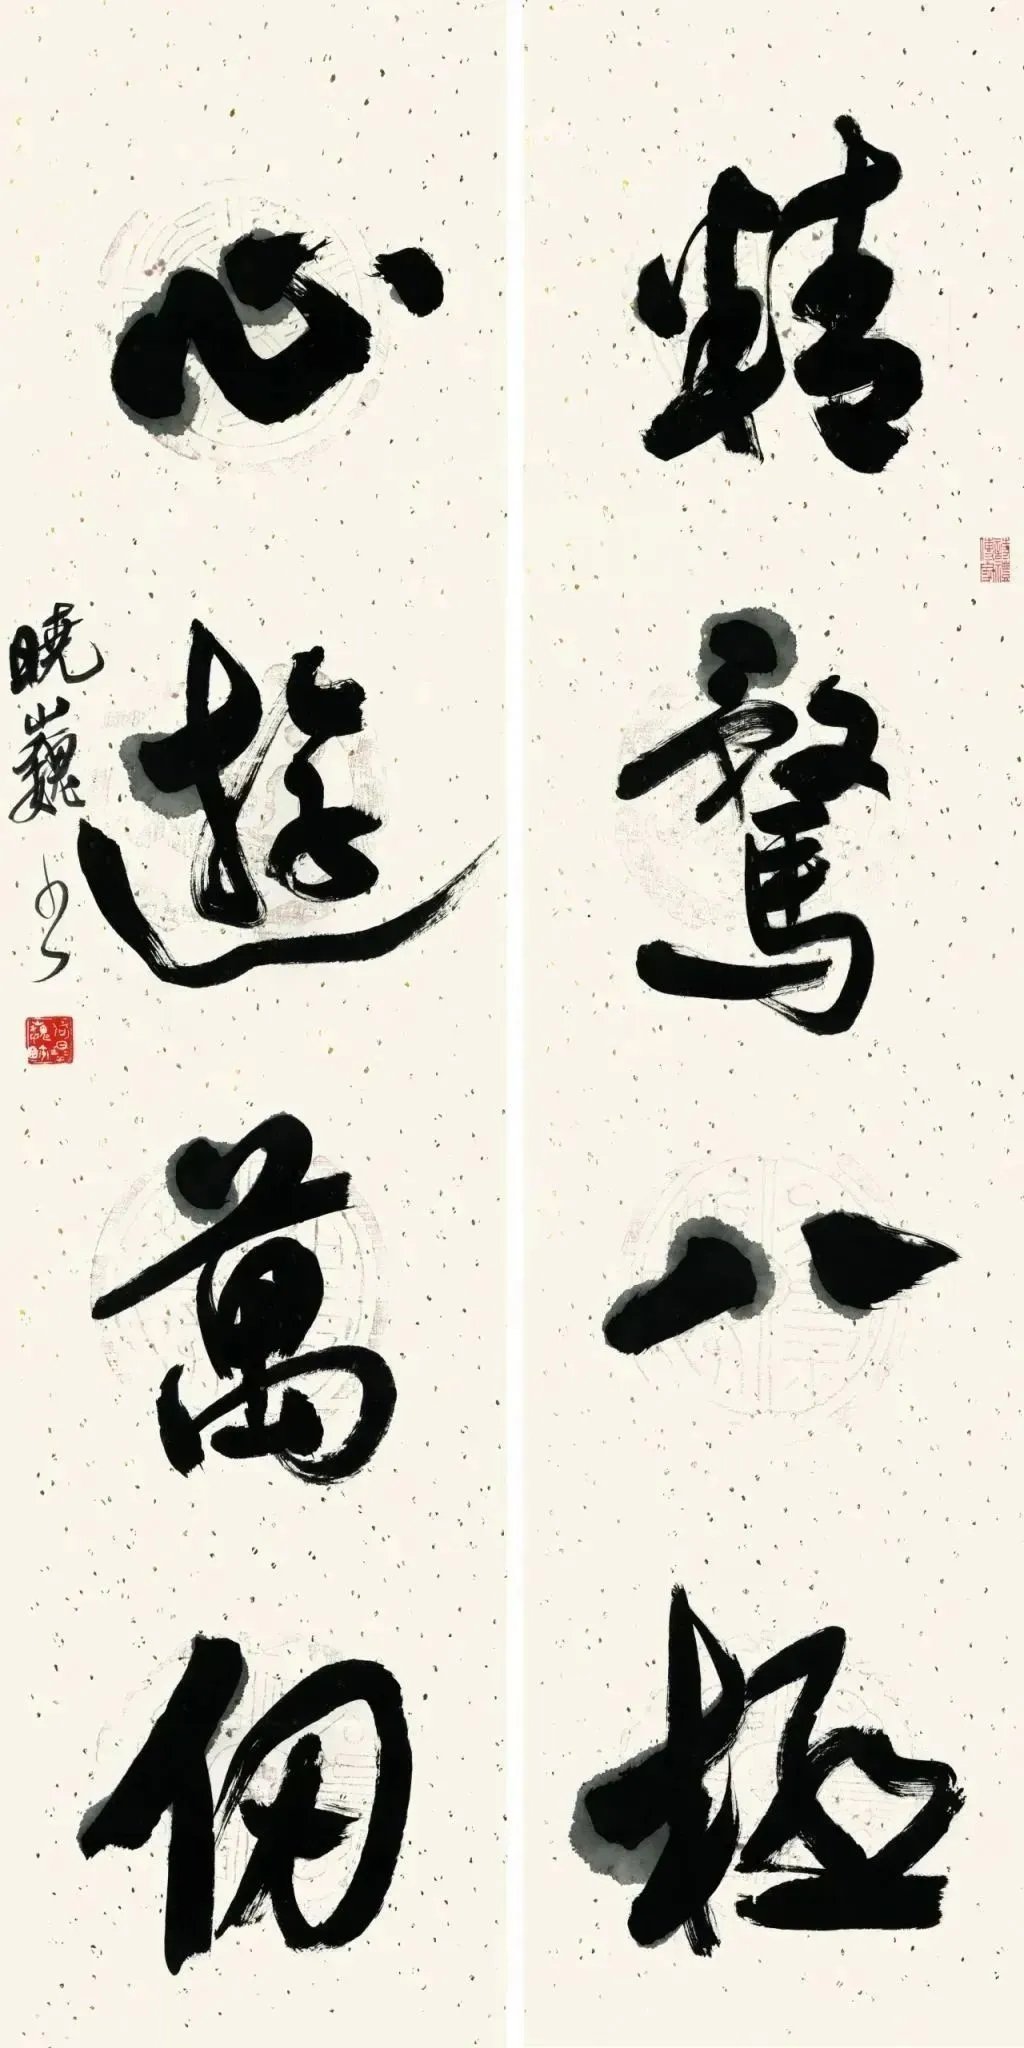 精騖八極
心遊萬仞
曉巍書